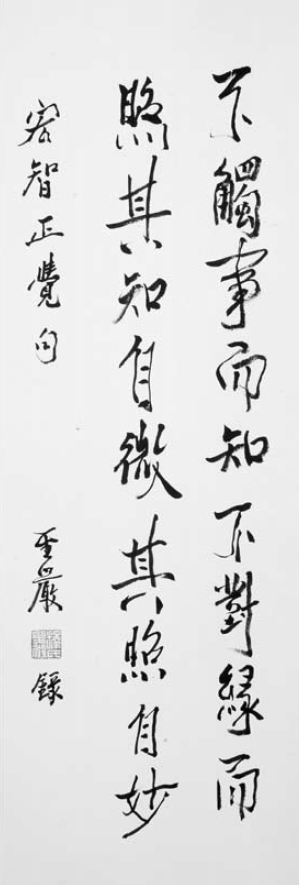 不觸事而知不對緣而
照其知自微其照自妙
宏智正覺句
聖嚴
錄